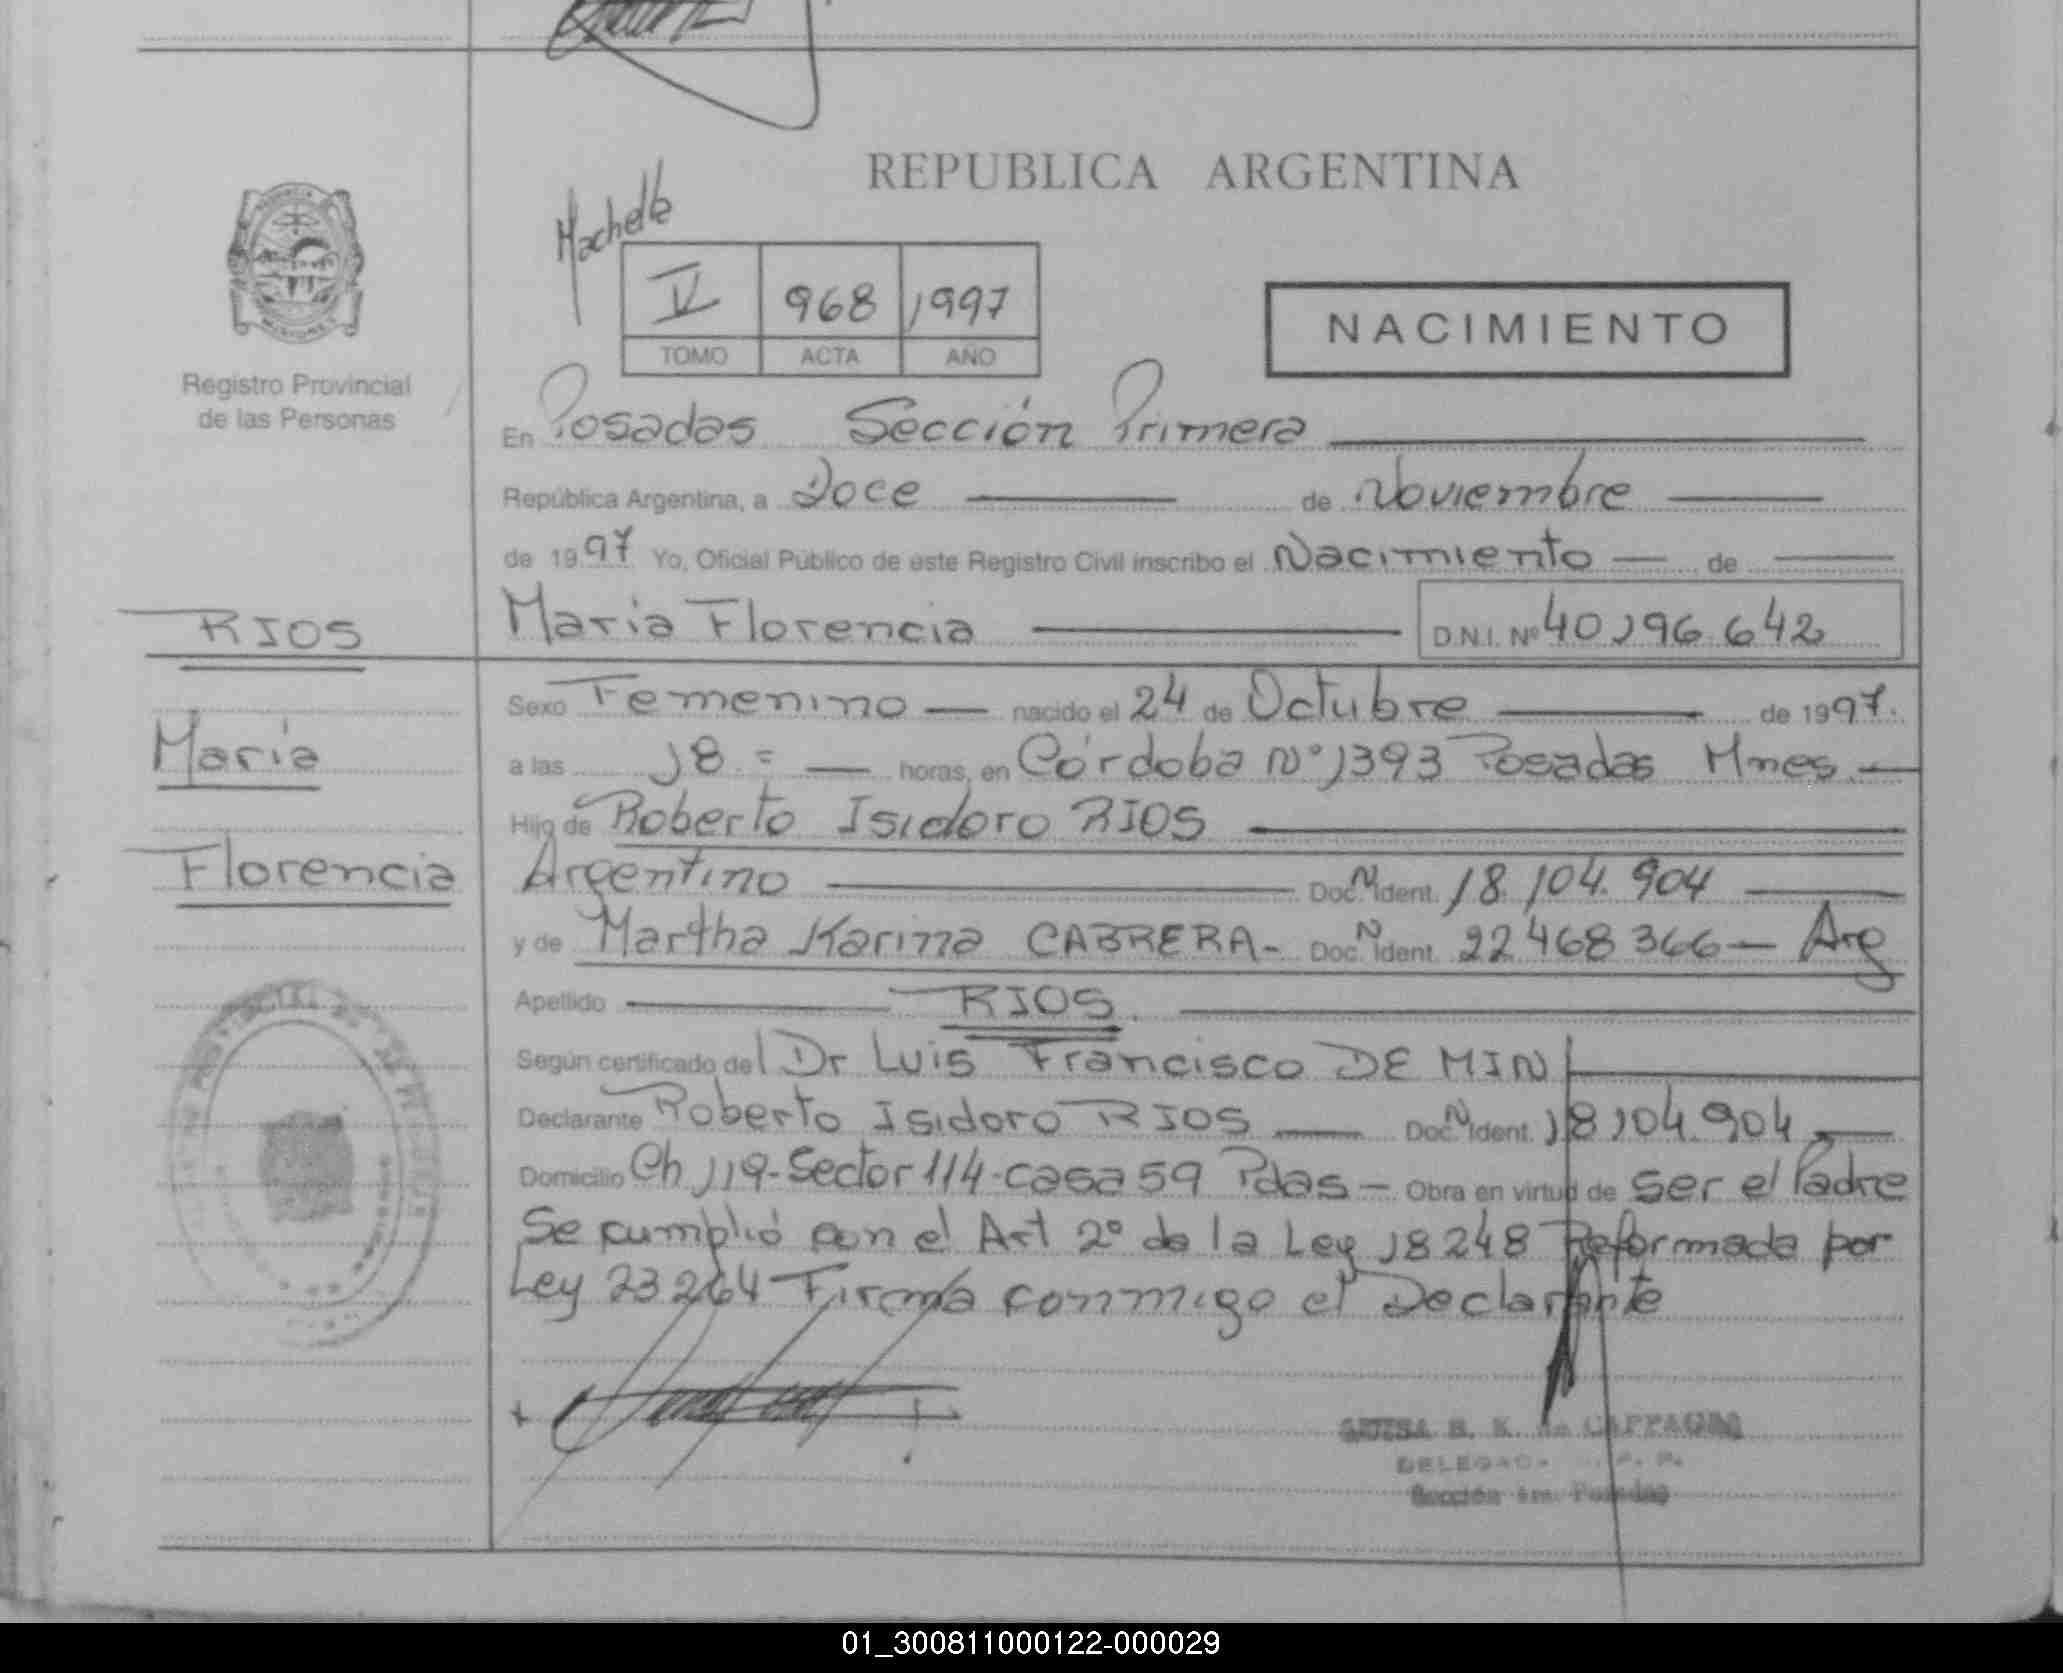 REPUBLICA ARGENTINA
Machelle
V 968 1997
TOMO ACTA AÑO
NACIMIENTO
Registro Provincial
de las Personas
En Posadas Sección Primera
República Argentina, a Doce de Noviembre
de 1997 Yo, Oficial Público de este Registro Civil inscribo el Nacimiento de
RIOS
María Florencia D.N.I. Nº 40196.642
Sexo Femenino nacido el 24 de Octubre de 1997.
María
a las 18 horas, en Córdoba Nº 1393 Posadas Mnes.
Hijo de Roberto Isidoro RIOS
Florencia
Argentino Doc. N Ident. 18.104.904
y de Martha Karina CABRERA - Doc. N Ident. 22468366 - Arg
Apellido RIOS.
Según certificado del Dr Luis Francisco DE MIN
Declarante Roberto Isidoro RIOS Doc. N Ident. 18104.904
Domicilio Ch 119-Sector 114-casa 59 Pdas - Obra en virtud de ser el Padre
Se cumplió con el Art 2º de la Ley 18248 Reformada por
Ley 23264 Firma conmigo el Declarante
B. K. de
Sección 1ra. Posadas
01_300811000122-000029